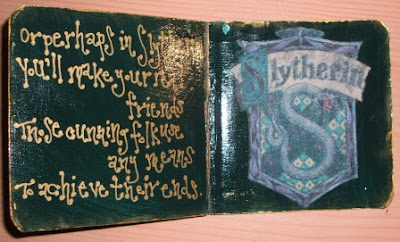 or perhaps in Slyth
You'll make your re
friends
Those cunning folk use
any means
To achieve their ends.
Slytherin